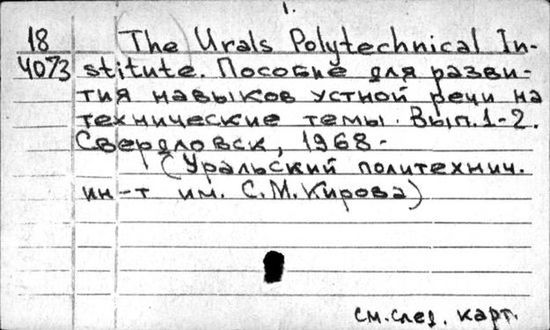 1.
18 The Urals Polytechnical In-
4073 stitute. Пособие для разви-
тия навыков устной речи на
технические темы. Вып. 1-2.
Свердловск, 1968-
(Уральский политехнич.
ин-т им. С.М.Кирова)
см.след. карт.